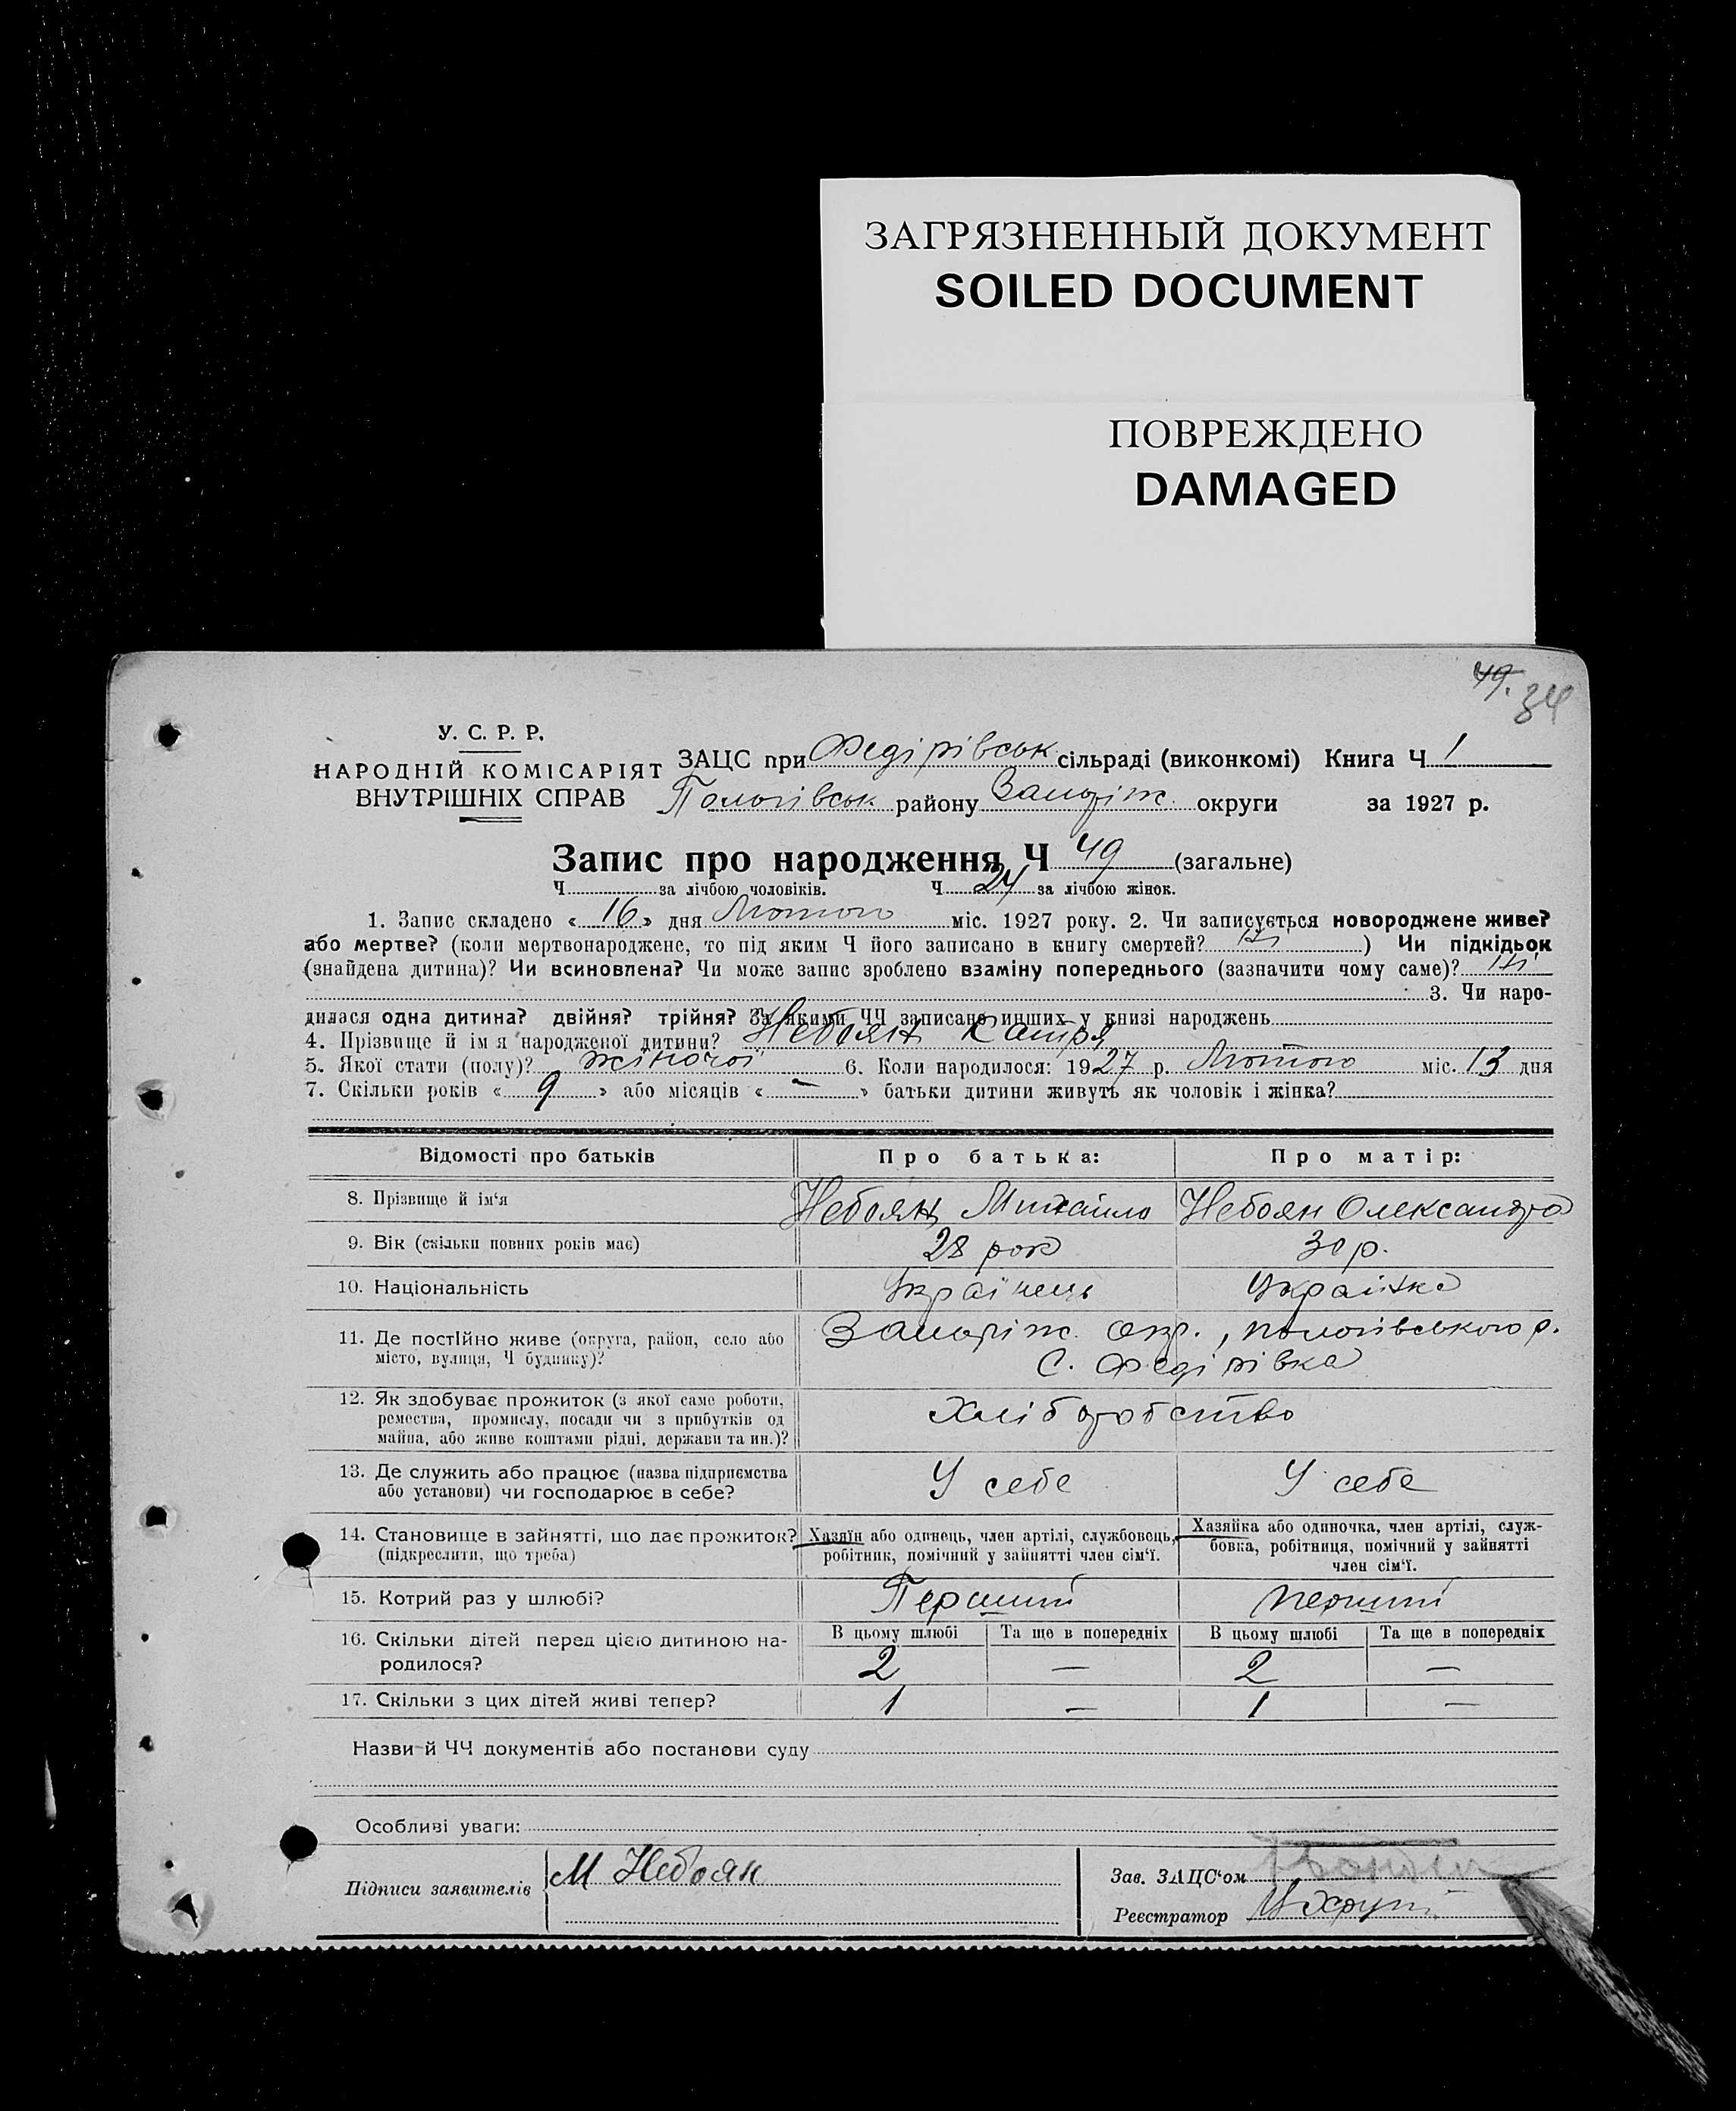 ЗАГРЯЗНЕННЫЙ ДОКУМЕНТ
SOILED DOCUMENT
ПОВРЕЖДЕНО
DAMAGED
49. 34
У. С. Р. Р.
НАРОДНІЙ КОМІСАРІЯТ
ВНУТРІШНІХ СПРАВ
ЗАЦС при Федірівськ сільраді (виконкомі) Книга Ч 1
Пологівськ району Запоріж. округи за 1927 р.
Запис про народження Ч 49 (загальне)
Ч за лічбою чоловіків. Ч 24 за лічбою жінок.
1. Запис складено «16» дня Лютого міс. 1927 року. 2. Чи записується новороджене живе?
або мертве? (коли мертвонароджене, то під яким Ч його записано в книгу смертей? ні) Чи підкідьок
(знайдена дитина)? Чи всиновлена? Чи може запис зроблено взаміну попереднього (зазначити чому саме)? ні
3. Чи наро-
дилася одна дитина? двійня? трійня? За якими ЧЧ записано инших у книзі народжень
4. Прізвище й ім'я народженої дитини? Небоян Катря
5. Якої стати (полу)? жіночої 6. Коли народилося: 1927 р. Лютого міс. 13 дня
7. Скільки років «9» або місяців «–» батьки дитини живуть як чоловік і жінка?
Відомості про батьків Про батька: Про матір:
8. Прізвище й ім'я Небоян Михайло Небоян Олександра
9. Вік (скільки повних років має) 28 рок 30 р.
10. Національність Українець Українка
11. Де постійно живе (округа, район, село або
місто, вулиця, Ч будинку)?
Запоріж. окр., пологівського р.
С. Федірівка
12. Як здобуває прожиток (з якої саме роботи,
ремества, промислу, посади чи з прибутків од
майна, або живе коштами рідні, держави та ин.)?
Хліборобство
13. Де служить або працює (назва підприємства
або установи) чи господарює в себе?
У себе У себе
14. Становище в зайнятті, що дає прожиток?
(підкреслити, що треба)
Хазяїн або одинець, член артілі, службовець,
робітник, помічний у зайнятті член сім'ї.
Хазяйка або одиночка, член артілі, служ-
бовка, робітниця, помічний у зайнятті
член сім'ї.
15. Котрий раз у шлюбі? Перший перший
16. Скільки дітей перед цією дитиною на-
родилося?
В цьому шлюбі Та ще в попередніх В цьому шлюбі Та ще в попередніх
2 — 2 —
17. Скільки з цих дітей живі тепер? 1 — 1 —
Назви й ЧЧ документів або постанови суду
Особливі уваги:
Підписи заявителів М Небоян
Зав. ЗАЦС'ом
Реєстратор